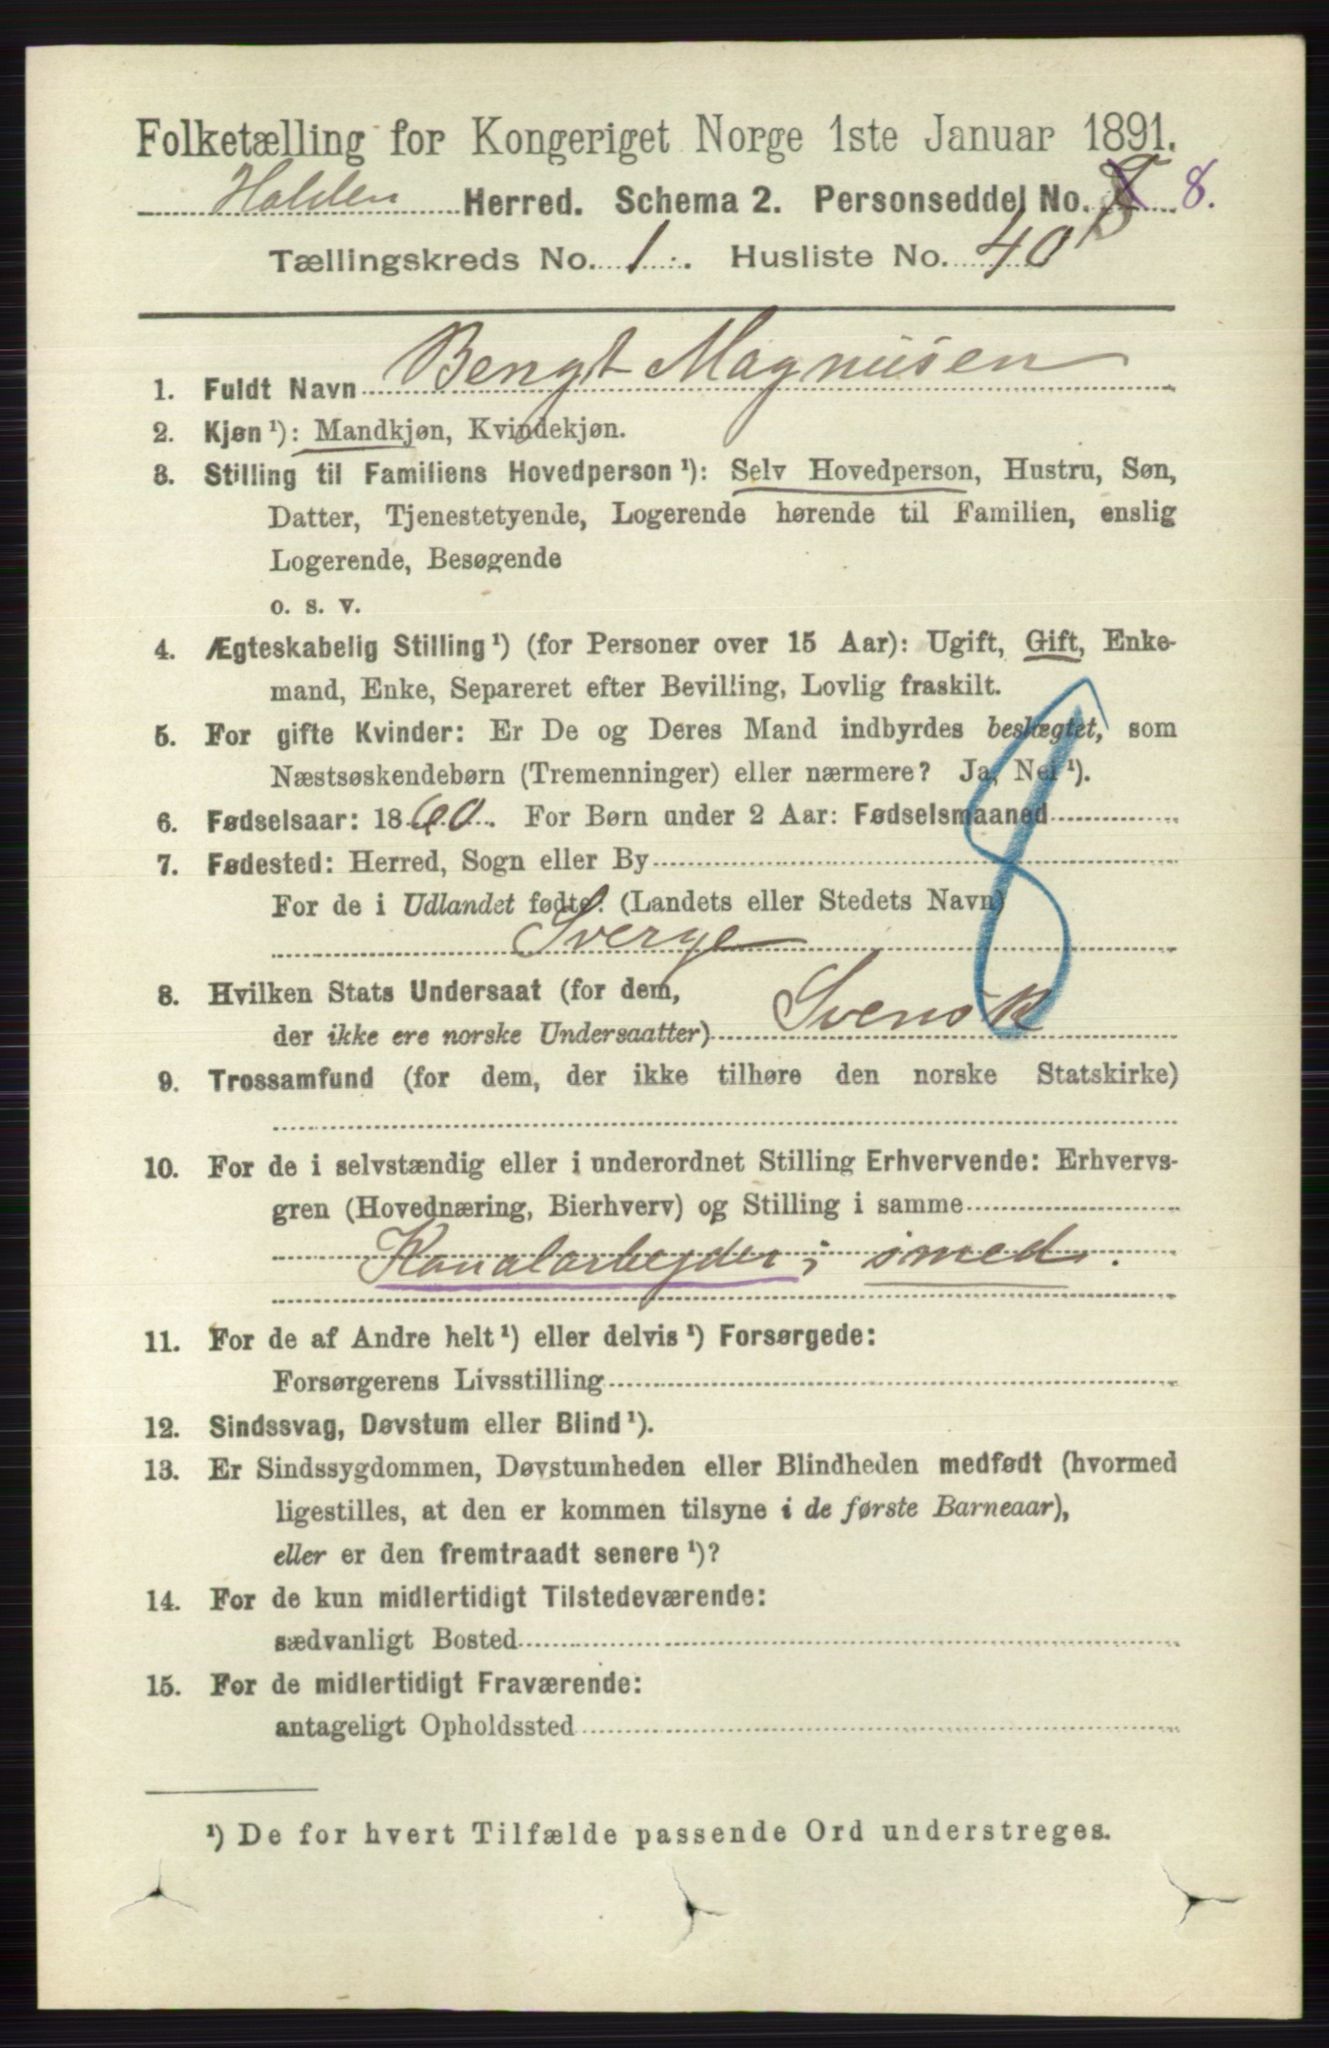 Folketælling for Kongeriget Norge 1ste Januar 1891.
Holden Herred. Schema 2. Personseddel No. 8 8.
Tællingskreds No. 1. Husliste No. 40
1. Fuldt Navn Bengt Magnusen
2. Kjøn ¹): Mandkjøn, Kvindekjøn.
3. Stilling til Familiens Hovedperson ¹): Selv Hovedperson, Hustru, Søn,
Datter, Tjenestetyende, Logerende hørende til Familien, enslig
Logerende, Besøgende
o. s. v.
4. Ægteskabelig Stilling ¹) (for Personer over 15 Aar): Ugift, Gift, Enke-
mand, Enke, Separeret efter Bevilling, Lovlig fraskilt.
5. For gifte Kvinder: Er De og Deres Mand indbyrdes beslægtet, som
Næstsøskendebørn (Tremenninger) eller nærmere? Ja, Nei ¹).
6. Fødselsaar: 1860. For Børn under 2 Aar: Fødselsmaaned
7. Fødested: Herred, Sogn eller By
For de i Udlandet fødte: (Landets eller Stedets Navn)
Sverge
8. Hvilken Stats Undersaat (for dem,
der ikke ere norske Undersaatter) Svensk
9. Trossamfund (for dem, der ikke tilhøre den norske Statskirke)
10. For de i selvstændig eller i underordnet Stilling Erhvervende: Erhvervs-
gren (Hovednæring, Bierhverv) og Stilling i samme
Kanalarbejder; smed.
11. For de af Andre helt ¹) eller delvis ¹) Forsørgede:
Forsørgerens Livsstilling
12. Sindssvag, Døvstum eller Blind ¹).
13. Er Sindssygdommen, Døvstumheden eller Blindheden medfødt (hvormed
ligestilles, at den er kommen tilsyne i de første Barneaar),
eller er den fremtraadt senere ¹)?
14. For de kun midlertidigt Tilstedeværende:
sædvanligt Bosted
15. For de midlertidigt Fraværende:
antageligt Opholdssted
8
¹) De for hvert Tilfælde passende Ord understreges.